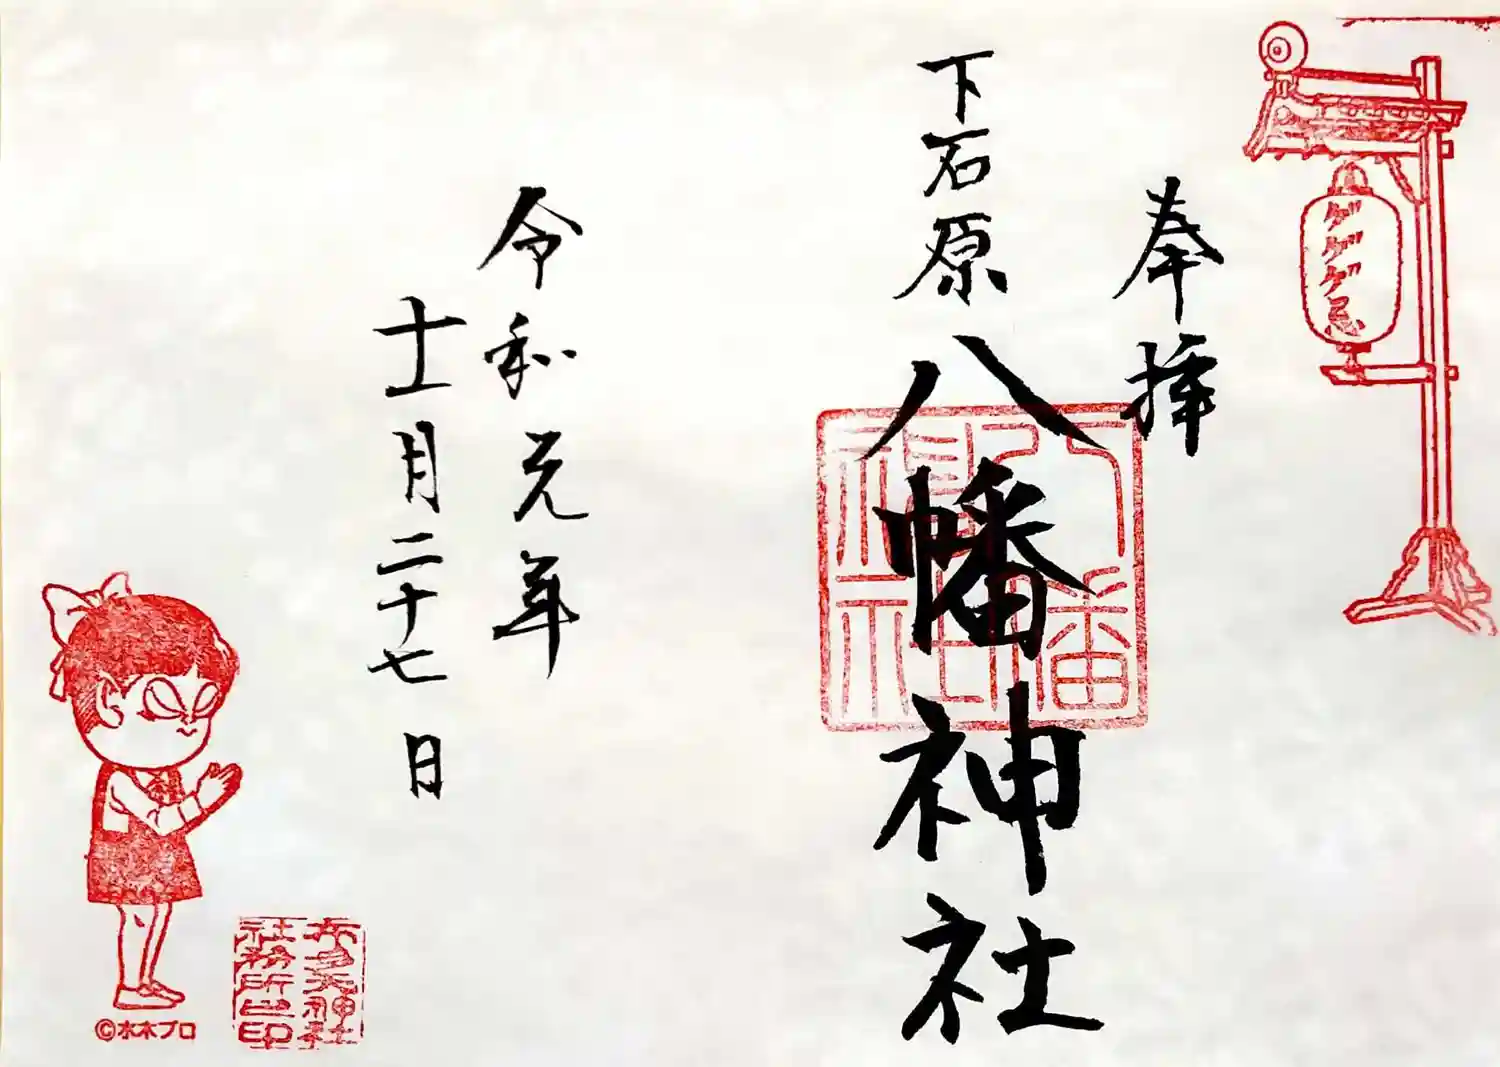 ゲゲゲ忌
奉拝
下石原八幡神社
八幡神社
令和元年
十一月二十七日
布多天神社
社務所之印
©水木プロ